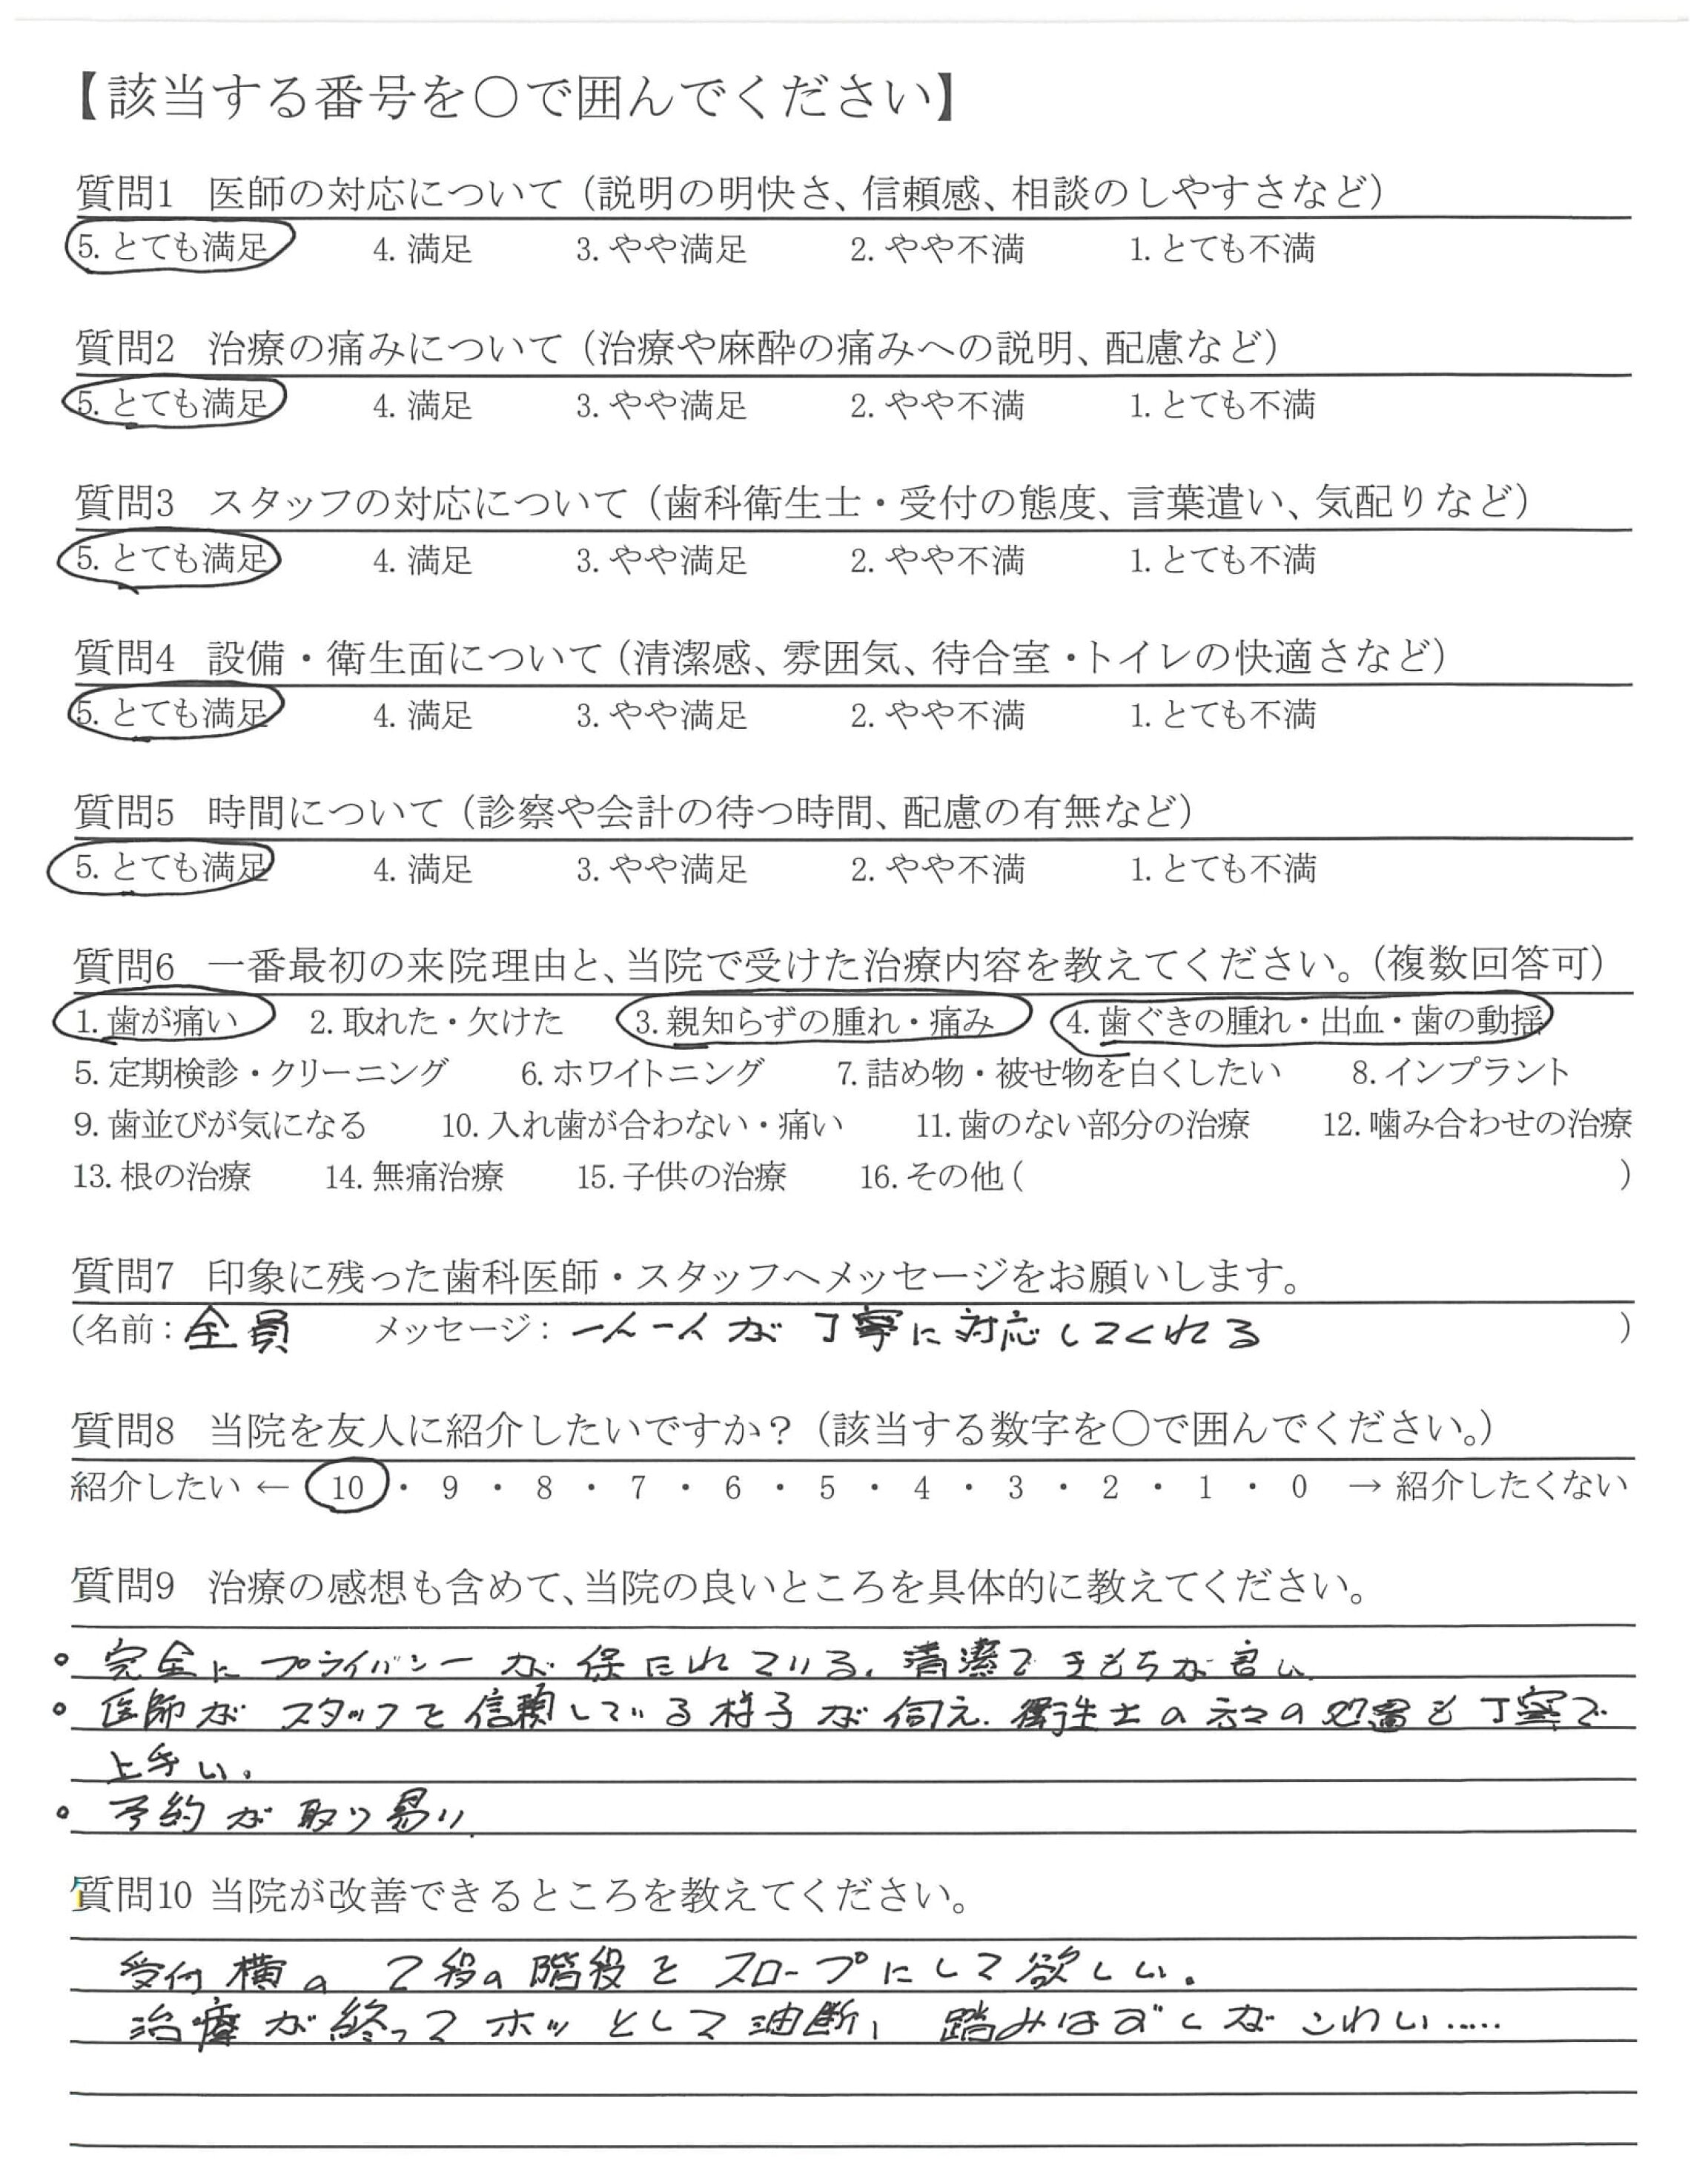 【該当する番号を○で囲んでください】
質問1 医師の対応について（説明の明快さ、信頼感、相談のしやすさなど）
5. とても満足 4. 満足 3. やや満足 2. やや不満 1. とても不満
質問2 治療の痛みについて（治療や麻酔の痛みへの説明、配慮など）
5. とても満足 4. 満足 3. やや満足 2. やや不満 1. とても不満
質問3 スタッフの対応について（歯科衛生士・受付の態度、言葉遣い、気配りなど）
5. とても満足 4. 満足 3. やや満足 2. やや不満 1. とても不満
質問4 設備・衛生面について（清潔感、雰囲気、待合室・トイレの快適さなど）
5. とても満足 4. 満足 3. やや満足 2. やや不満 1. とても不満
質問5 時間について（診察や会計の待つ時間、配慮の有無など）
5. とても満足 4. 満足 3. やや満足 2. やや不満 1. とても不満
質問6 一番最初の来院理由と、当院で受けた治療内容を教えてください。（複数回答可）
1. 歯が痛い 2. 取れた・欠けた 3. 親知らずの腫れ・痛み 4. 歯ぐきの腫れ・出血・歯の動揺
5. 定期検診・クリーニング 6. ホワイトニング 7. 詰め物・被せ物を白くしたい 8. インプラント
9. 歯並びが気になる 10. 入れ歯が合わない・痛い 11. 歯のない部分の治療 12. 噛み合わせの治療
13. 根の治療 14. 無痛治療 15. 子供の治療 16. その他（ ）
質問7 印象に残った歯科医師・スタッフへメッセージをお願いします。
（名前：全員 メッセージ：一人一人が丁寧に対応してくれる ）
質問8 当院を友人に紹介したいですか？（該当する数字を○で囲んでください。）
紹介したい ← 10 ・ 9 ・ 8 ・ 7 ・ 6 ・ 5 ・ 4 ・ 3 ・ 2 ・ 1 ・ 0 → 紹介したくない
質問9 治療の感想も含めて、当院の良いところを具体的に教えてください。
。完全にプライバシーが保たれている。清潔できもちが良い
。医師がスタッフを信頼している様子が伺え、衛生士の方々の処置も丁寧で
上手い。
。予約が取り易い
質問10 当院が改善できるところを教えてください。
受付横の2段の階段をスロープにして欲しい。
治療が終ってホッとして油断し 踏みはずしがこわい……